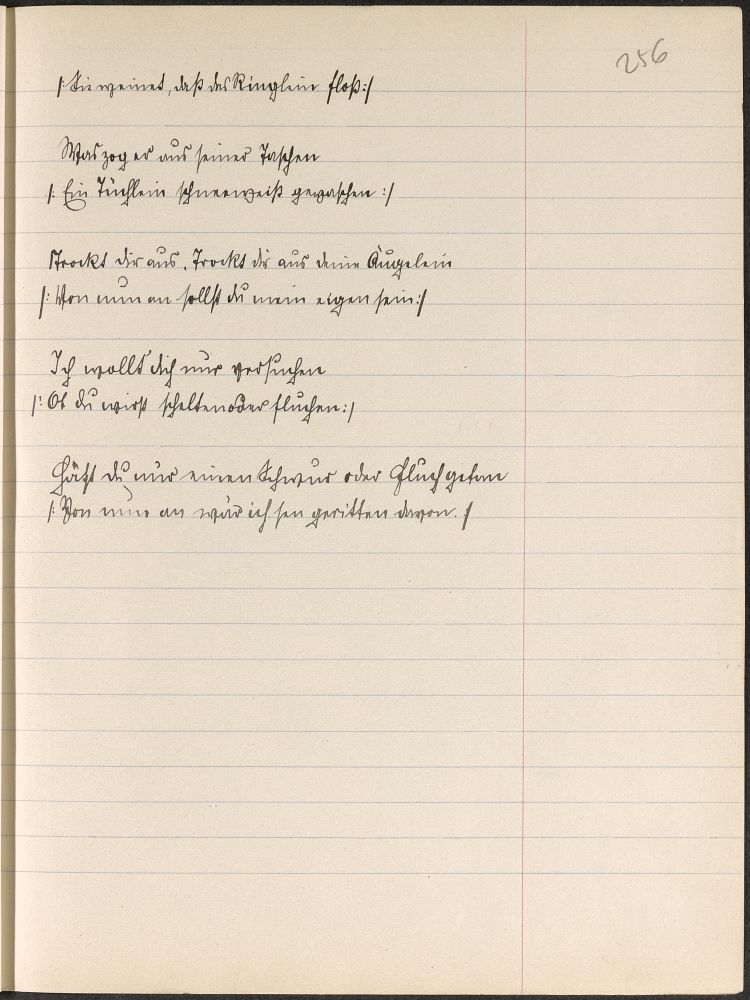 256
/: Sie weinet, daß das Ringlein floß :/
Was zog er aus seiner Taschen
/: Ein Tüchlein schneeweiß gewaschen :/
Trockt dir aus, Trockt dir aus deine Äugelein
/: Von nun an sollst du mein eigen sein :/
Ich wollt' dich nur versuchen
/: Ob du wirst schelten oder fluchen :/
Hätst du nur einen Schwur oder Fluch getan
/: Von nun an wär ich geritten davon. /